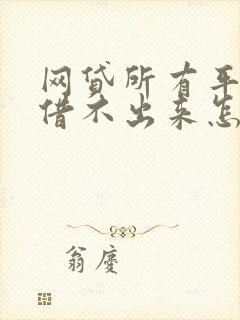 网贷所有平
借不出来怎
翁庆